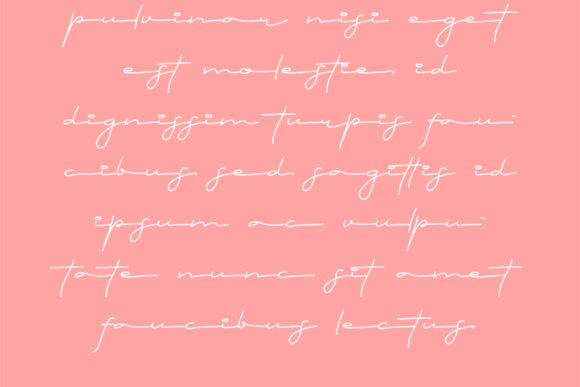 pulvinar nisi eget
est molestie id
dignissim turpis fau-
cibus sed sagittis id
ipsum ac vulpu-
tate nunc sit amet
faucibus lectus